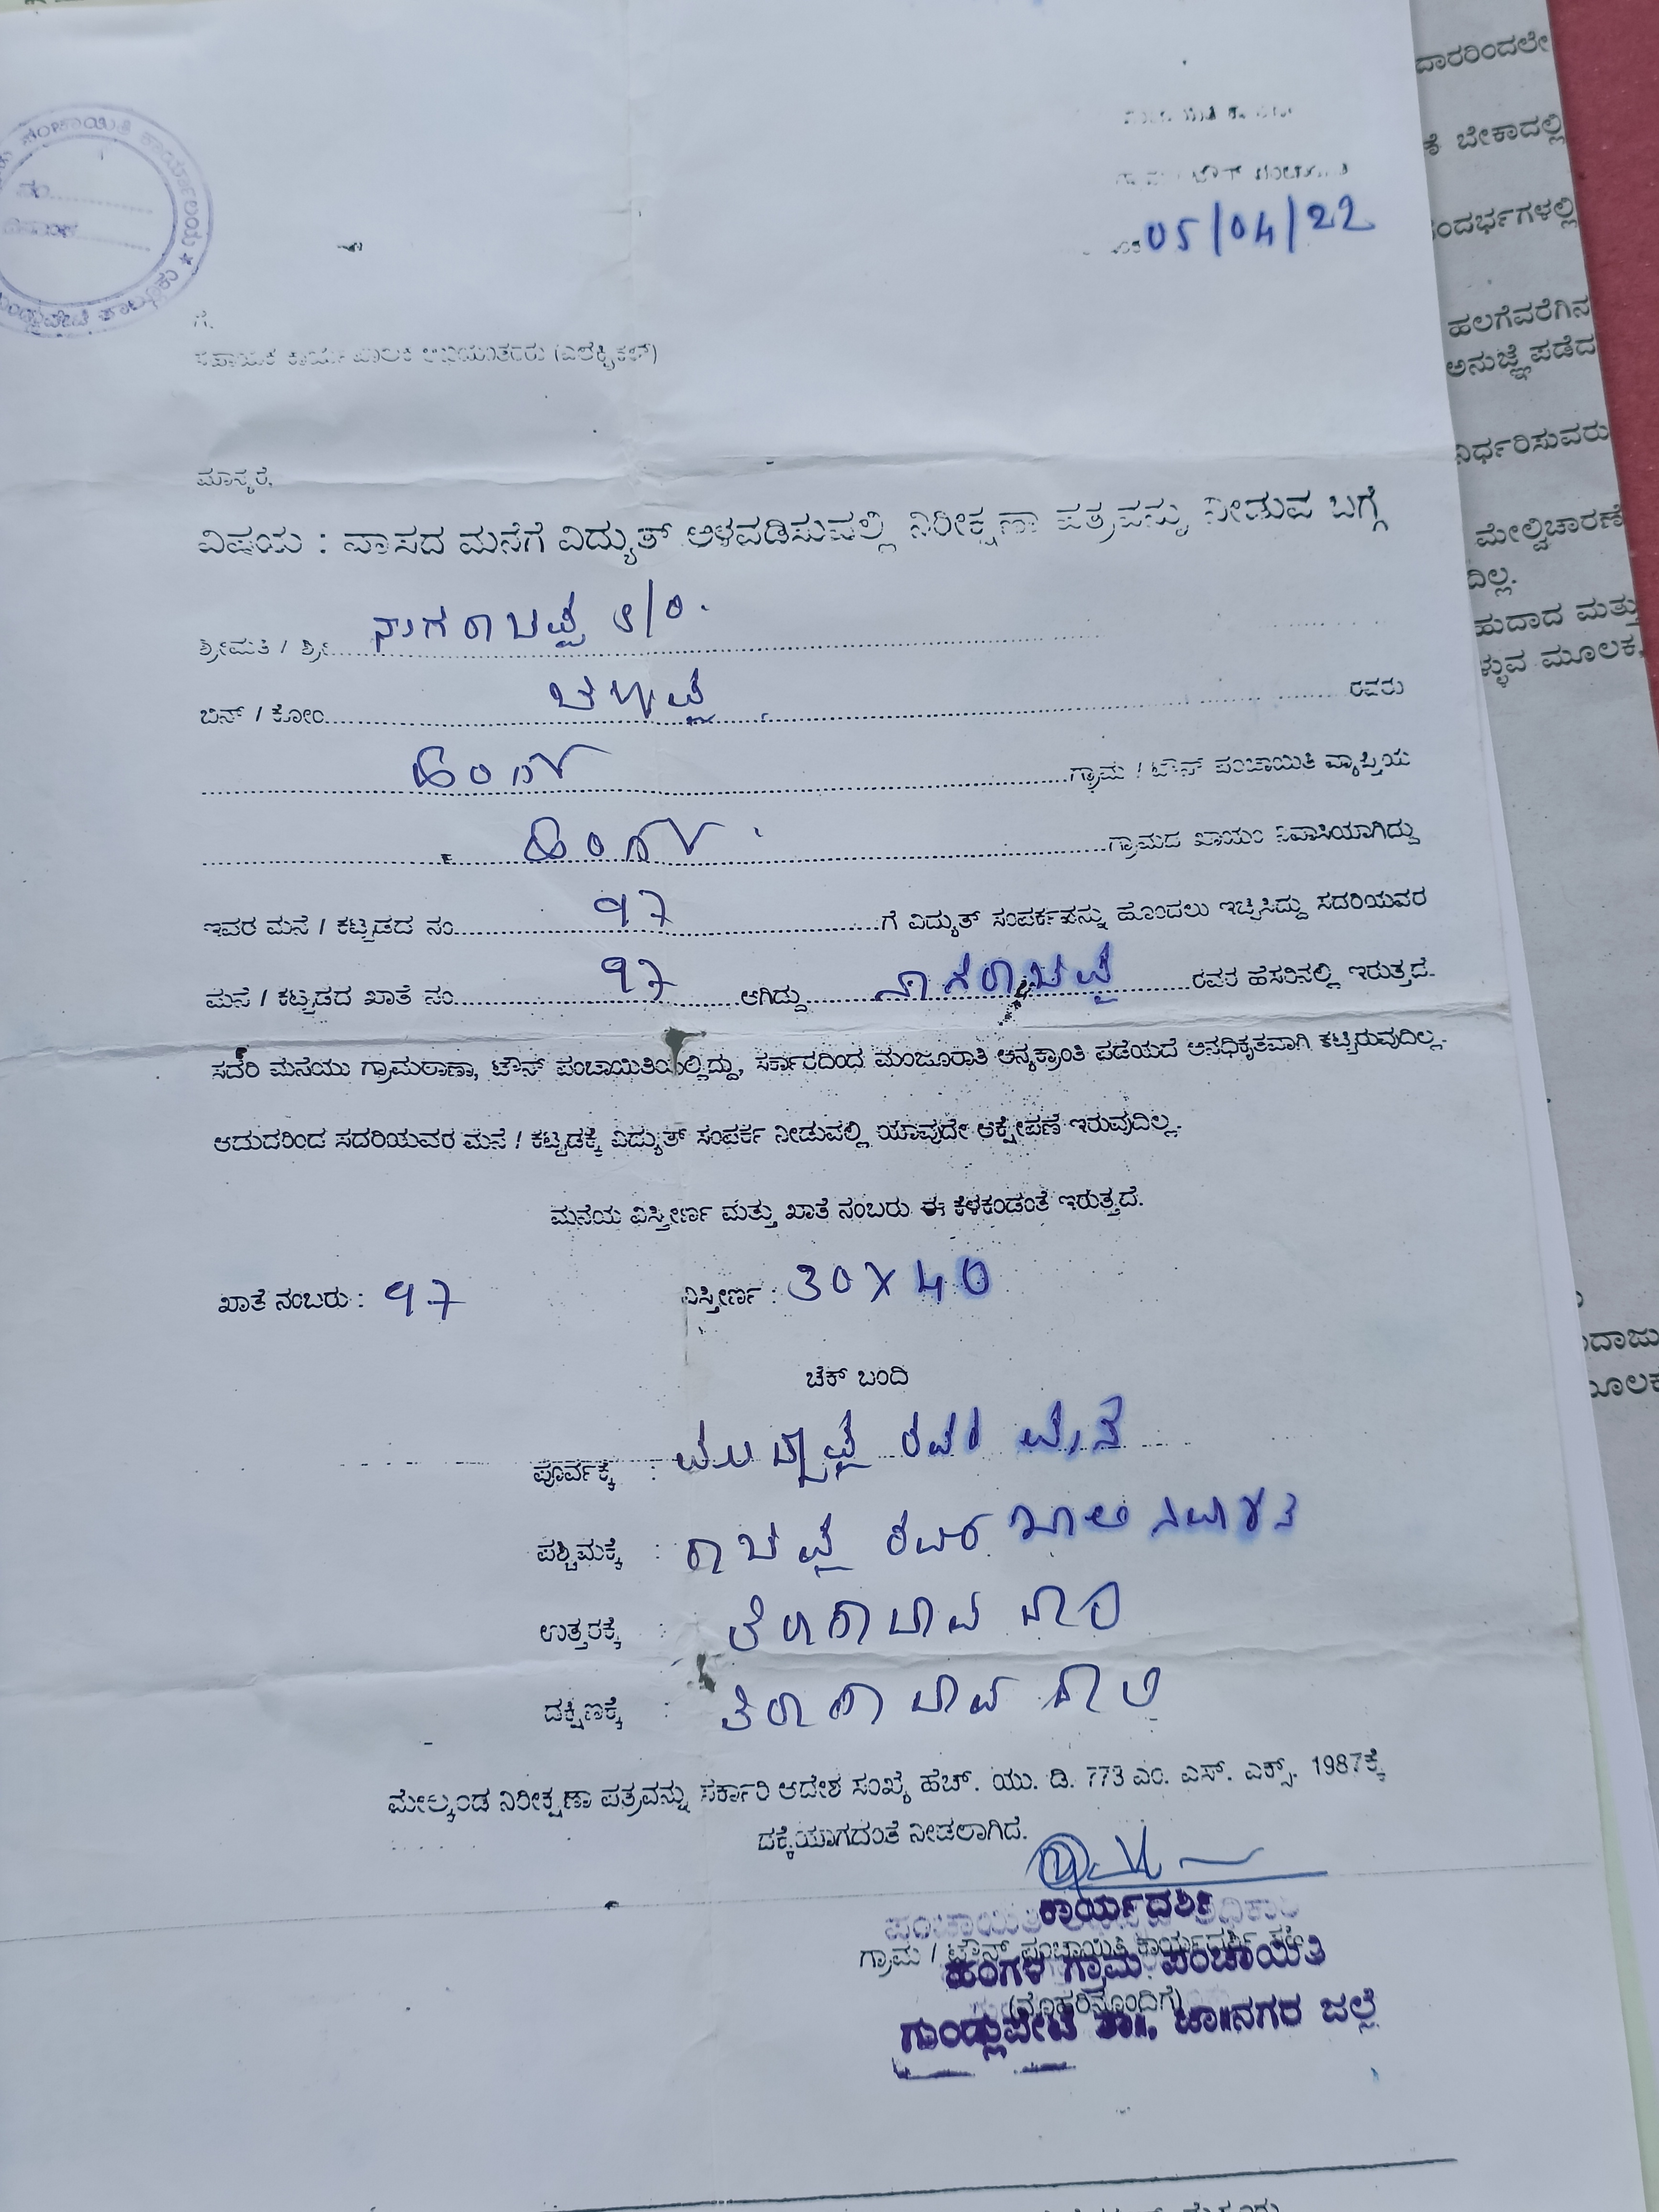 05/04/22
ಗೆ,
ಸಹಾಯಕ ಕಾರ್ಯಪಾಲಕ ಅಭಿಯಂತರರು (ಎಲೆಕ್ಟ್ರಿಕಲ್)
ಮಾನ್ಯರೆ,
ವಿಷಯ : ವಾಸದ ಮನೆಗೆ ವಿದ್ಯುತ್ ಅಳವಡಿಸುವಲ್ಲಿ ನಿರೀಕ್ಷಣಾ ಪತ್ರವನ್ನು ನೀಡುವ ಬಗ್ಗೆ
ಶ್ರೀಮತಿ / ಶ್ರೀ ನಾಗರಾಜಪ್ಪ
ಬಿನ್ / ಕೋಂ ರವರು
ಹಂಗಳ ಗ್ರಾಮ / ಟೌನ್ ಪಂಚಾಯಿತಿ ವ್ಯಾಪ್ತಿಯ
ಹಂಗಳ ಗ್ರಾಮದ ಖಾಯಂ ನಿವಾಸಿಯಾಗಿದ್ದು
ಇವರ ಮನೆ / ಕಟ್ಟಡದ ನಂ 97 ಗೆ ವಿದ್ಯುತ್ ಸಂಪರ್ಕವನ್ನು ಹೊಂದಲು ಇಚ್ಛಿಸಿದ್ದು ಸದರಿಯವರ
ಮನೆ / ಕಟ್ಟಡದ ಖಾತೆ ನಂ 97 ಆಗಿದ್ದು ನಾಗರಾಜಪ್ಪ ರವರ ಹೆಸರಿನಲ್ಲಿ ಇರುತ್ತದೆ.
ಸದರಿ ಮನೆಯು ಗ್ರಾಮಠಾಣಾ, ಟೌನ್ ಪಂಚಾಯಿತಿಯಲ್ಲಿದ್ದು, ಸರ್ಕಾರದಿಂದ ಮಂಜೂರಾತಿ ಅನ್ಯಕ್ರಾಂತಿ ಪಡೆಯದೆ ಅನಧಿಕೃತವಾಗಿ ಕಟ್ಟಿರುವುದಿಲ್ಲ.
ಆದುದರಿಂದ ಸದರಿಯವರ ಮನೆ / ಕಟ್ಟಡಕ್ಕೆ ವಿದ್ಯುತ್ ಸಂಪರ್ಕ ನೀಡುವಲ್ಲಿ ಯಾವುದೇ ಆಕ್ಷೇಪಣೆ ಇರುವುದಿಲ್ಲ.
ಮನೆಯ ವಿಸ್ತೀರ್ಣ ಮತ್ತು ಖಾತೆ ನಂಬರು ಈ ಕೆಳಕಂಡಂತೆ ಇರುತ್ತದೆ.
ಖಾತೆ ನಂಬರು : 97 ವಿಸ್ತೀರ್ಣ : 30 X 40
ಚೆಕ್ ಬಂದಿ
ಪೂರ್ವಕ್ಕೆ : ರವರ ಮನೆ
ಪಶ್ಚಿಮಕ್ಕೆ : ರಾಜಪ್ಪ ರವರ ಖಾಲಿ ನಿವೇಶನ
ಉತ್ತರಕ್ಕೆ :
ದಕ್ಷಿಣಕ್ಕೆ :
ಮೇಲ್ಕಂಡ ನಿರೀಕ್ಷಣಾ ಪತ್ರವನ್ನು ಸರ್ಕಾರಿ ಆದೇಶ ಸಂಖ್ಯೆ ಹೆಚ್. ಯು. ಡಿ. 773 ಎಂ. ಎಸ್. ಎಕ್ಸ್. 1987ಕ್ಕೆ
ದಕ್ಕೆಯಾಗದಂತೆ ನೀಡಲಾಗಿದೆ.
ಕಾರ್ಯದರ್ಶಿ
ಗ್ರಾಮ / ಟೌನ್ ಪಂಚಾಯಿತಿ ಕಾರ್ಯದರ್ಶಿ ಸಹಿ
ಹಂಗಳ ಗ್ರಾಮ ಪಂಚಾಯಿತಿ
(ಮೊಹರಿನೊಂದಿಗೆ)
ಗುಂಡ್ಲುಪೇಟೆ ತಾ॥, ಚಾ॥ನಗರ ಜಿಲ್ಲೆ
ದಾರರಿಂದಲೇ
ಬೇಕಾದಲ್ಲಿ
ಸಂದರ್ಭಗಳಲ್ಲಿ
ಹಲಗೆವರೆಗಿನ
ಅನುಜ್ಞೆ ಪಡೆದ
ನಿರ್ಧರಿಸುವರು
ಮೇಲ್ವಿಚಾರಣೆ
ದಿಲ್ಲ.
ಹುದಾದ ಮತ್ತು
ಳ್ಳುವ ಮೂಲಕ,